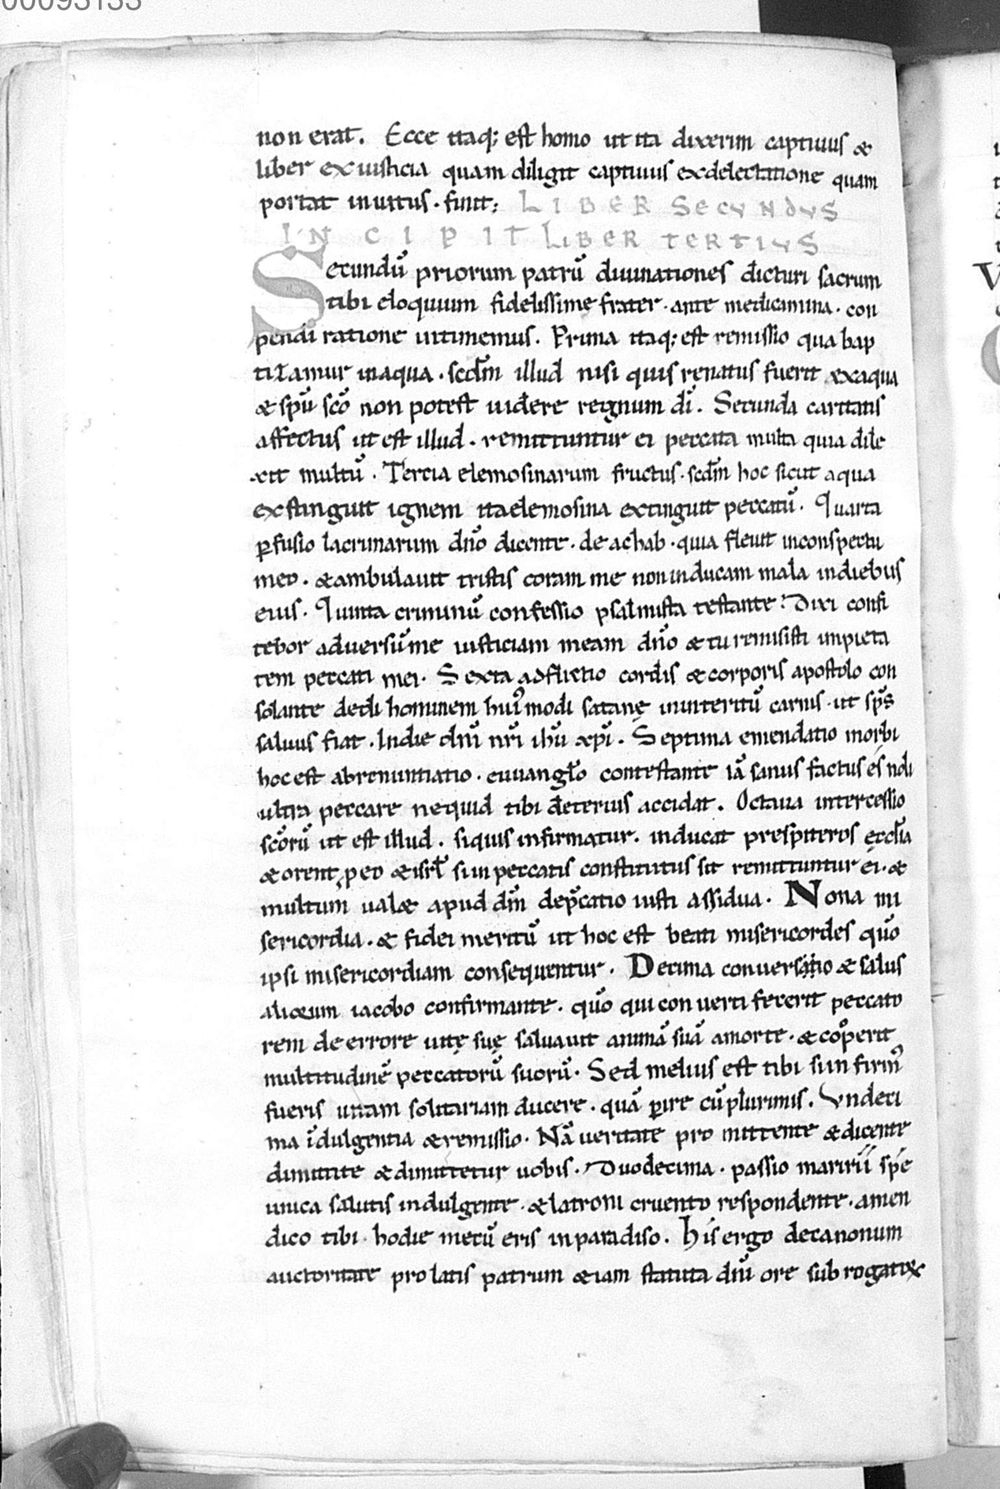 00093133
non erat. Ecce itaq; est homo ut ita dixerim captiuus &
liber ex iusticia quam diligit captiuus exdelectatione quam
portat inuitus. finit; LIBER SECUNDUS
INCIPIT LIBER TERTIUS
Secundū priorum patrū diuinationes dicturi sacrum
tibi eloquium fidelissime frater. ante medicamina. con
pendi ratione intimemus. Prima itaq; est remissio qua bap
tizamur in aqua. scdm illud nisi quis renatus fuerit exaqua
& spū scō non potest uidere reignum di. Secunda caritatis
affectus ut est illud. remittuntur ei peccata multa quia dile
xit multū. Tercia elemosinarum fructus. scdm hoc sicut aqua
exstinguit ignem ita elemosina extinguit peccatū. Quarta
pfusio lacrimarum dño dicente. de achab. quia fleuit inconspectu
meo. & ambulauit tristis coram me non inducam mala indiebus
eius. Quinta criminū confessio psalmista testante. Dixi confi
tebor aduersūme iusticiam meam dño & tu remisisti impieta
tem peccati mei. Sexta adflictio cordis & corporis apostolo con
solante dedi hominem hui'modi satanę ininteritū carnis. ut sps
saluus fiat. Indie dni nri ihu xpi. Septima emendatio morbi
hoc est abrenuntiatio. euuanglo contestante iā sanus factus es noli
ultra peccare nequid tibi deterius accidat. Octaua intercessio
scorū ut est illud. siquis infirmatur. inducat prespiteros ęcclia
& orent p eo & isrl si in peccatis constitutus sit remittuntur ei. &
multum ual& apud dm depcatio iusti assidua. Nona mi
sericordia. & fidei meritū ut hoc est beati misericordes quō
ipsi misericordiam consequentur. Decima conuersatio & salus
alioeum iacobo confirmante. quō qui conuerti fecerit peccato
rem de errore uitę suę saluauit animā suā amorte. & coopertit
multitudinē peccatorū suorū. Sed melius est tibi si infirm'
fueris uitam solitariam ducere. quā pire cū plurimis. Vndeci
ma īdulgentia & remissio. Nā ueritate pro mittente & dicente
dimittite & dimittetur uobis. Duodecima. passio martirii spē
unica salutis indulgente. & latroni cruento respondente. amen
dico tibi. hodie mecū eris in paradiso. his ergo decanonum
auctoritate prolatis patrum &iam statuta diū ore subrogatox